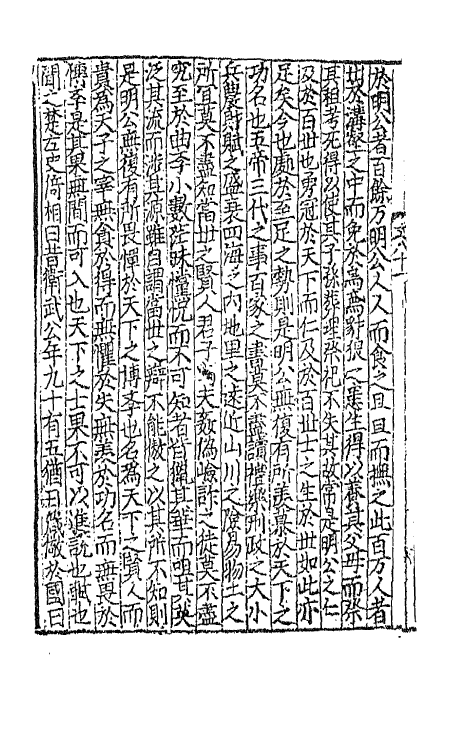 於明公者百餘万明公人人而食之旦旦而撫之此百万人者
出於溝壑之中而免於烏鳶豺狼之患生得以養其父母而祭
其祖考死得以使其子孫葬埋祭祀不失其故常是明公之仁
及於百世也勇冠於天下而仁及於百世士之生於世如此亦
足矣今也處於至足之勢則是明公無復有所羨慕於天下之
功名也五帝三代之事百家之書莫不盡讀禮樂刑政之大小
兵農財賦之盛衰四海之内地里之遠近山川之險易物土之
所宜莫不盡知當世之賢人君子與夫姦偽嶮詐之徒莫不盡
究至於曲學小數茫昧惝怳而不可知者皆獵其華而咀其英
泛其流而涉其源雖自謂當世之辯不能傲之以其所不知則
是明公無復有所畏憚於天下之博學也名為天下之賢人而
貴為天子之宰無貪於得而無懼於失無羨於功名而無畏於
博學是其果無間而可入也天下之士果不可以進說也軾也
聞之楚左史倚相曰昔衛武公年九十有五猶日箴儆於國曰